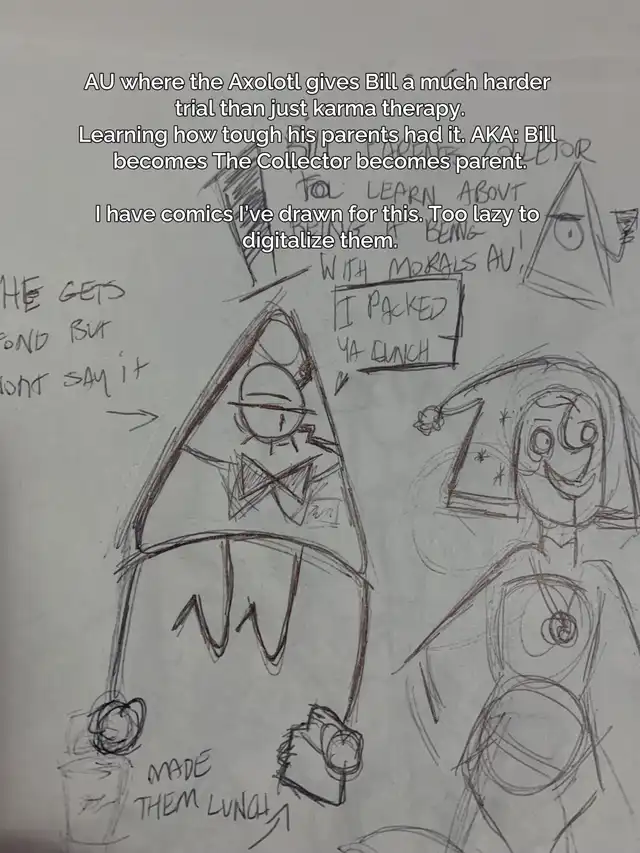 AU where the Axolotl gives Bill a much harder
trial than just karma therapy.
Learning how tough his parents had it. AKA: Bill
becomes The Collector becomes parent.
I have comics I've drawn for this. Too lazy to
digitalize them.
TO LEARN ABOUT
BEING A BEING
WITH MORALS AU!
HE GETS
FOND BUT
WONT SAY it
I PACKED
YA LUNCH
MADE
THEM LUNCH